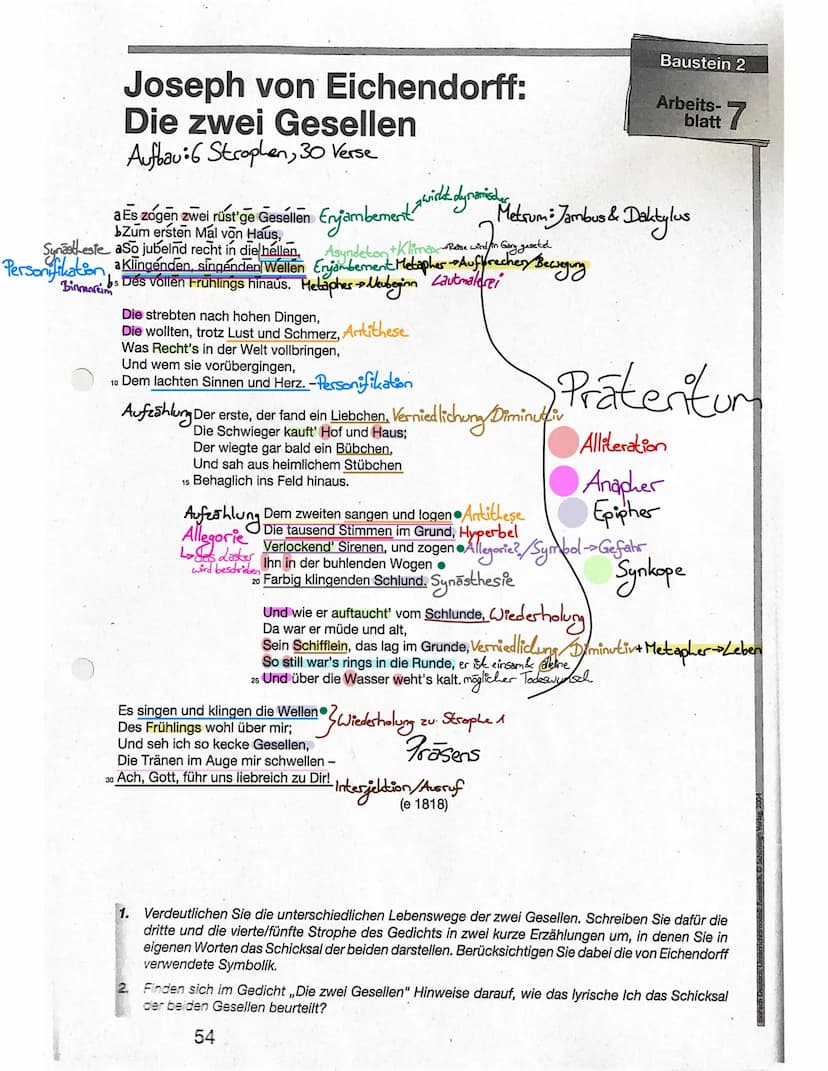 Baustein 2
Arbeits-
blatt 7
Joseph von Eichendorff:
Die zwei Gesellen
Aufbau: 6 Strophen, 30 Verse
wirkt dynamischer
a Es zogen zwei rüst'ge Gesellen Enjambement Metrum: Jambus & Daktylus
b Zum ersten Mal von Haus,
Synästhesie a So jubelnd recht in die hellen, Asyndeton + Klimax → Reise wird in Gang gesetzt
Personifikation a Klingenden, singenden Wellen Enjambement Metapher → Aufbrechen/Bewegung
Binnenreim b 5 Des vollen Frühlings hinaus. Metapher → Neubeginn Lautmalerei
Die strebten nach hohen Dingen,
Die wollten, trotz Lust und Schmerz, Antithese
Was Recht's in der Welt vollbringen,
Und wem sie vorübergingen,
10 Dem lachten Sinnen und Herz. - Personifikation
Präteritum
Aufzählung Der erste, der fand ein Liebchen, Verniedlichung/Diminutiv
Die Schwieger kauft' Hof und Haus;
Der wiegte gar bald ein Bübchen,
Und sah aus heimlichem Stübchen
15 Behaglich ins Feld hinaus.
Alliteration
Anapher
Epipher
Synkope
Aufzählung Dem zweiten sangen und logen Antithese
Allegorie Die tausend Stimmen im Grund, Hyperbel
↳ das Laster Verlockend' Sirenen, und zogen Allegorie?/Symbol → Gefahr
wird beschrieben Ihn in der buhlenden Wogen
20 Farbig klingenden Schlund. Synästhesie
Und wie er auftaucht' vom Schlunde, Wiederholung
Da war er müde und alt,
Sein Schifflein, das lag im Grunde, Verniedlichung/Diminutiv + Metapher → Leben
So still war's rings in die Runde, er ist einsam & alleine
25 Und über die Wasser weht's kalt. möglicher Todeswunsch
Es singen und klingen die Wellen
Des Frühlings wohl über mir; Wiederholung zu Strophe 1
Und seh ich so kecke Gesellen, Präsens
Die Tränen im Auge mir schwellen –
30 Ach, Gott, führ uns liebreich zu Dir! Interjektion/Ausruf
(e 1818)
1. Verdeutlichen Sie die unterschiedlichen Lebenswege der zwei Gesellen. Schreiben Sie dafür die
dritte und die vierte/fünfte Strophe des Gedichts in zwei kurze Erzählungen um, in denen Sie in
eigenen Worten das Schicksal der beiden darstellen. Berücksichtigen Sie dabei die von Eichendorff
verwendete Symbolik.
2. Finden sich im Gedicht „Die zwei Gesellen" Hinweise darauf, wie das lyrische Ich das Schicksal
der beiden Gesellen beurteilt?
54